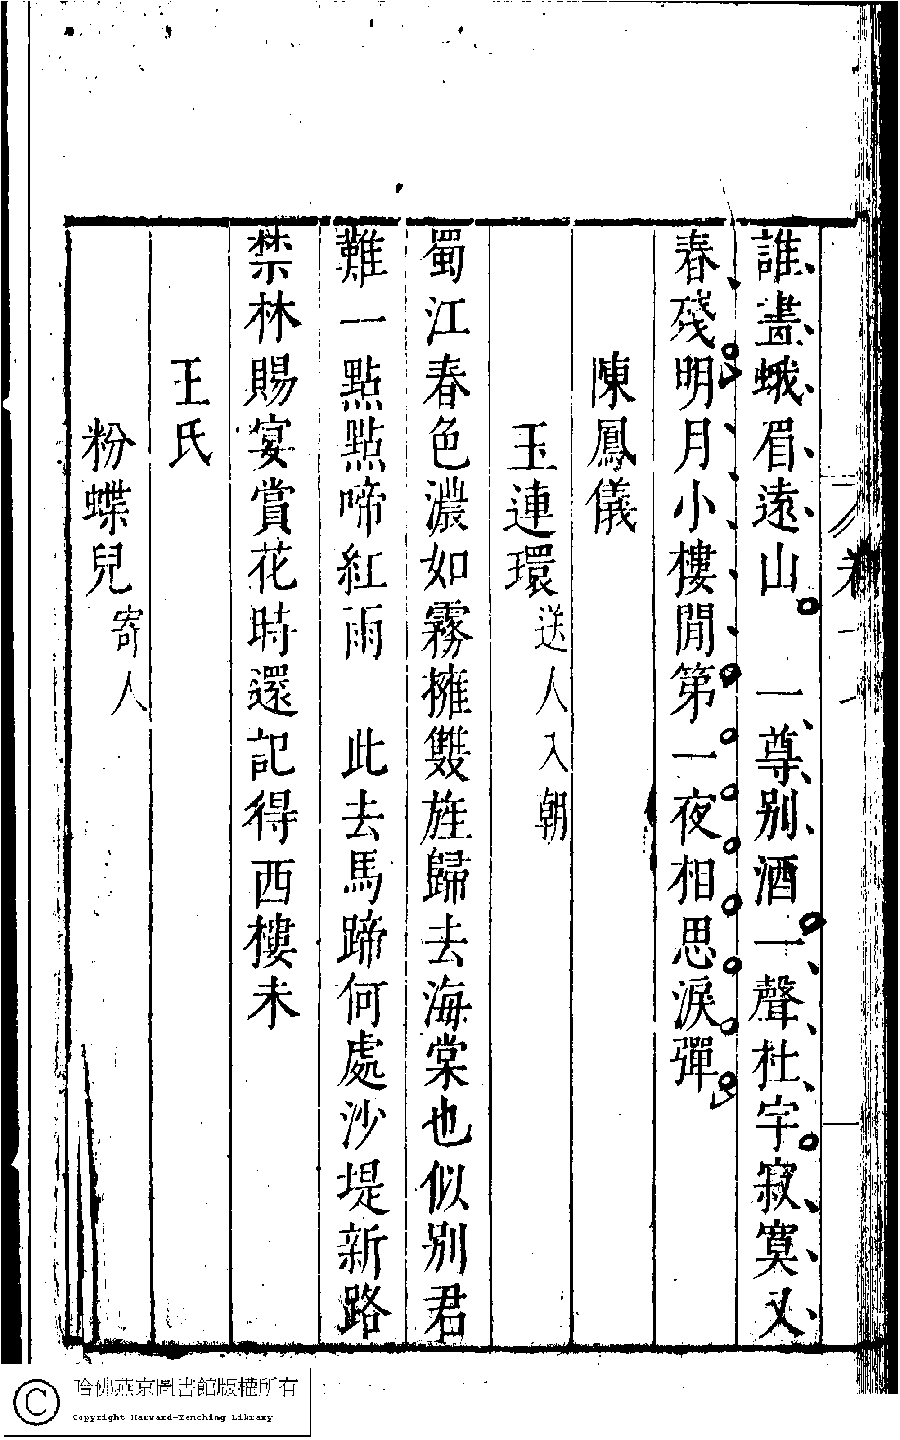 誰畫蛾眉遠山　一尊別酒一聲杜宇寂寞又
春殘明月小樓閒第一夜相思淚彈
陳鳳儀
玉連環 送人入朝
蜀江春色濃如霧擁雙旌歸去海棠也似別君
難一點點啼紅雨　此去馬蹄何處沙堤新路
禁林賜宴賞花時還記得西樓未
王氏
粉蝶兒 寄人
哈佛燕京圖書館版權所有
Copyright Harvard-Yenching Library